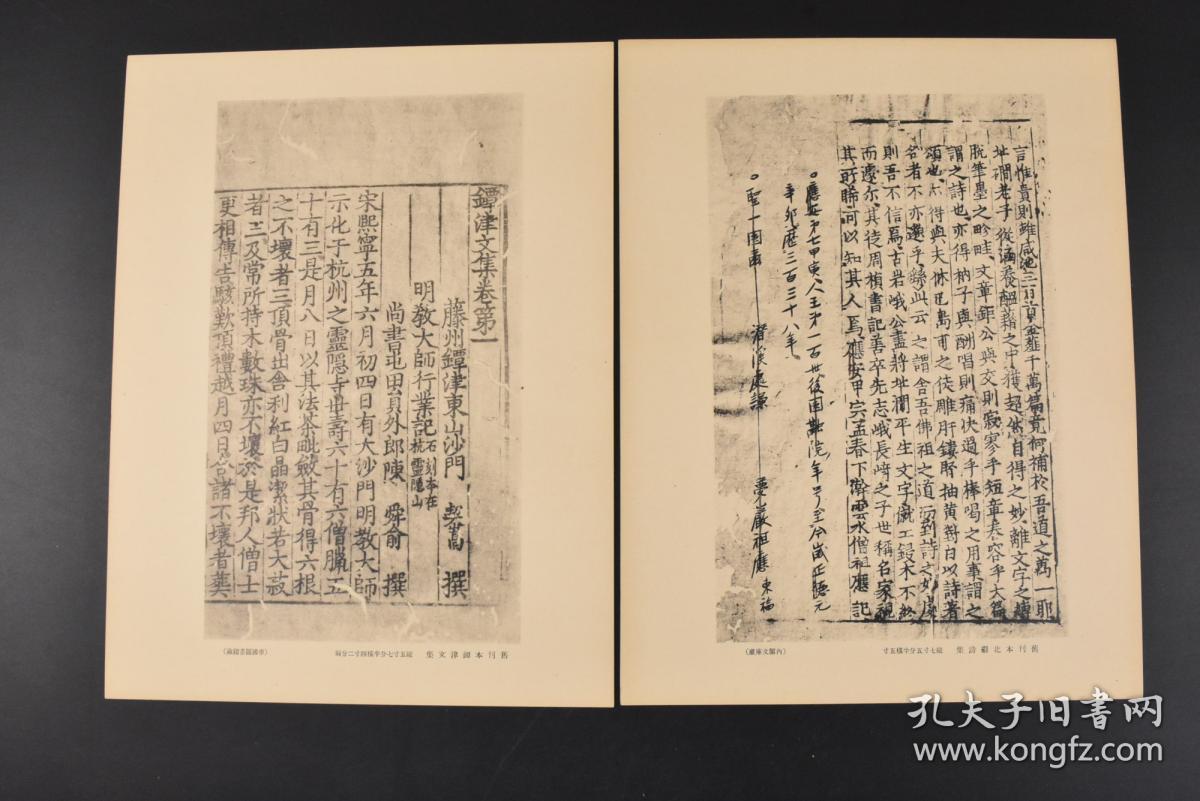 鐔津文集卷第一
藤州鐔津東山沙門 契嵩 撰
明敎大師行業記 石刻本在杭靈隱山
尚書屯田員外郎陳 舜俞 撰
宋熙寧五年六月初四日有大沙門明敎大師
示化于杭州之靈隱寺世壽六十有六僧臘五
十有三是月八日以其法茶毗斂其骨得六根
之不壞者三頂骨出舍利紅白晶潔狀若大菽
者三及常所持木數珠亦不壞於是邦人僧士
更相傳告駭歎頂禮越月四日合諸不壞者葬
舊刊本鐔津文集 縱五寸七分半橫四寸二分弱
言惟貴則雖咸池三日直金薤千萬篇竟何補於吾道之萬一耶
址磵老子從涵養醞藉之中獲超然自得之妙離文字之縛
脫筆墨之畛畦文章鉅公與交則寂寥乎短章舂容乎大篇
謂之詩也亦得衲子與酬唱則痛快過乎棒喝之用事謂之
頌也亦得與夫休已島可之徒雕肝鏤腎抽黃對白以詩著
名者不亦遼乎
則吾不信焉古岩峨公盡將址磵平生文字
而遽尔其徒周楨書記善卒先志峨長﨑之子世稱名家視
其所歸可以知其人焉應安甲寅孟春下澣雲水僧祖應記
應安第七甲寅人王第一百世後圓融院年号至今歲正德元
辛卯歷三百三十八年
聖一國師
夢巖祖應 東福
舊刊本北磵詩集 縱七寸五分半橫五寸
(內閣文庫藏)
孔夫子旧書网
www.kongfz.com